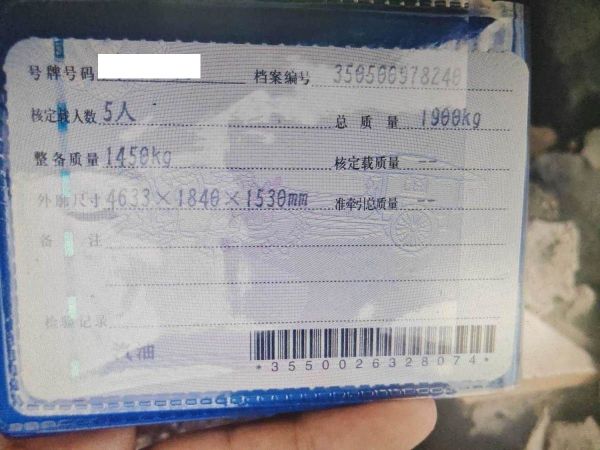 号牌号码 档案编号 350500978240
核定载人数 5人 总质量 1900kg
整备质量 1450kg 核定载质量 --
外廓尺寸 4633×1840×1530mm 准牵引总质量 --
备注
检验记录
汽油
*3550026328074*